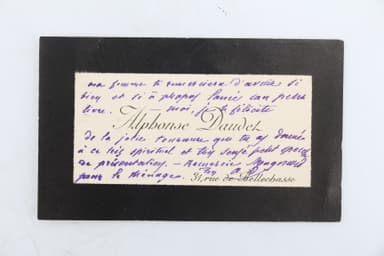 ma femme te remerciera d'avoir si
bien et si à propos lancé son petit
livre. moi, je te félicite
Alphonse Daudet
de la jolie tournure que tu as donnée
à ce très spirituel et très petit
de présentation. —
pour le ménage.
31, rue de Bellechasse